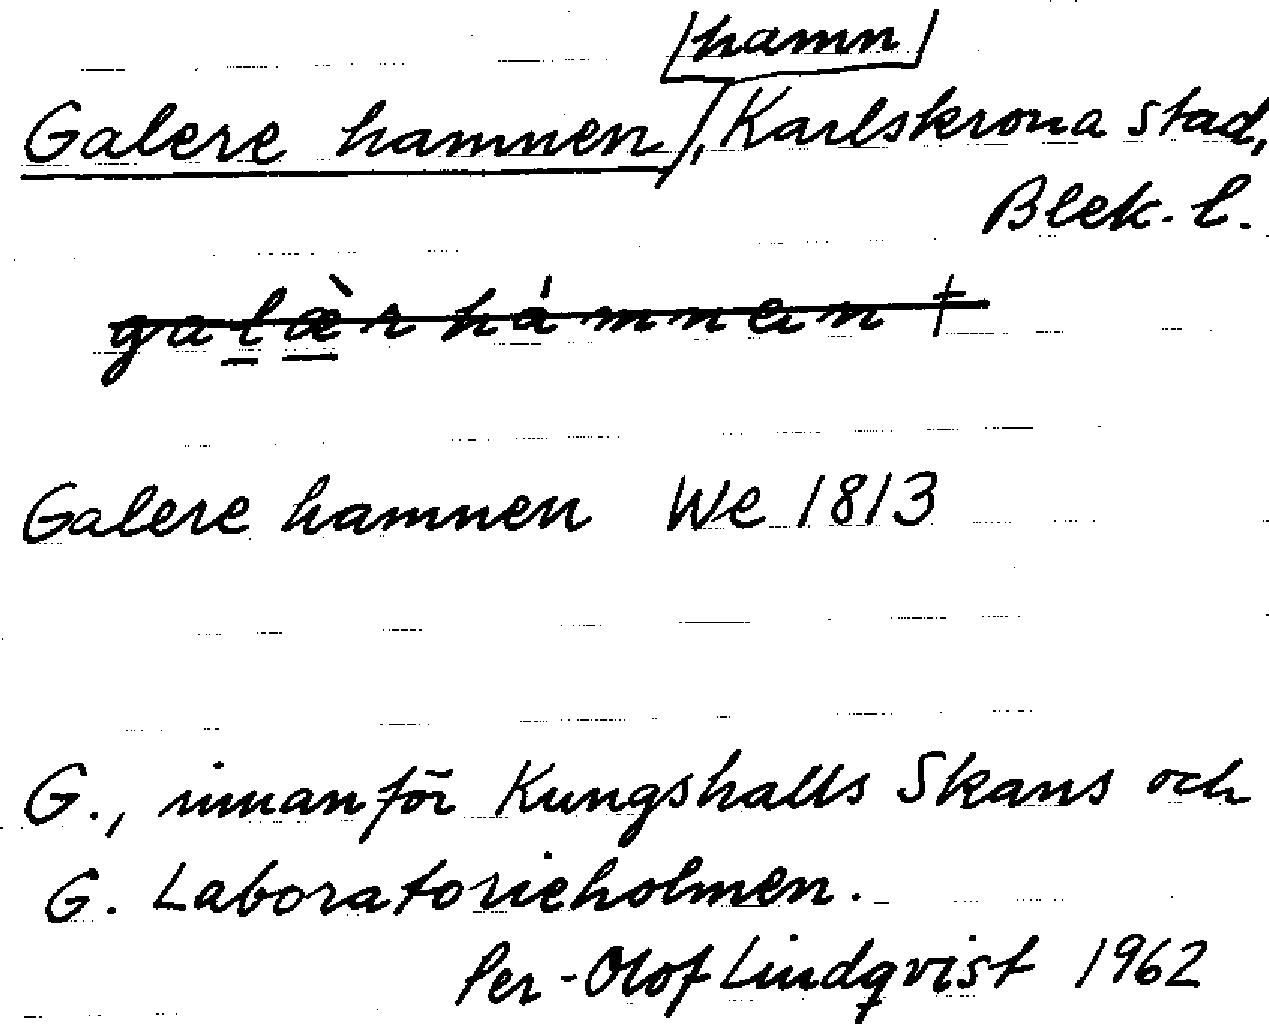 hamn
Galere hamnen, Karlskrona stad,
Blek. l.
galæ̀rhámnen †
Galere hamnen We 1813
G., innanför Kungshalls Skans och
G. Laboratorieholmen.
Per-Olof Lindqvist 1962